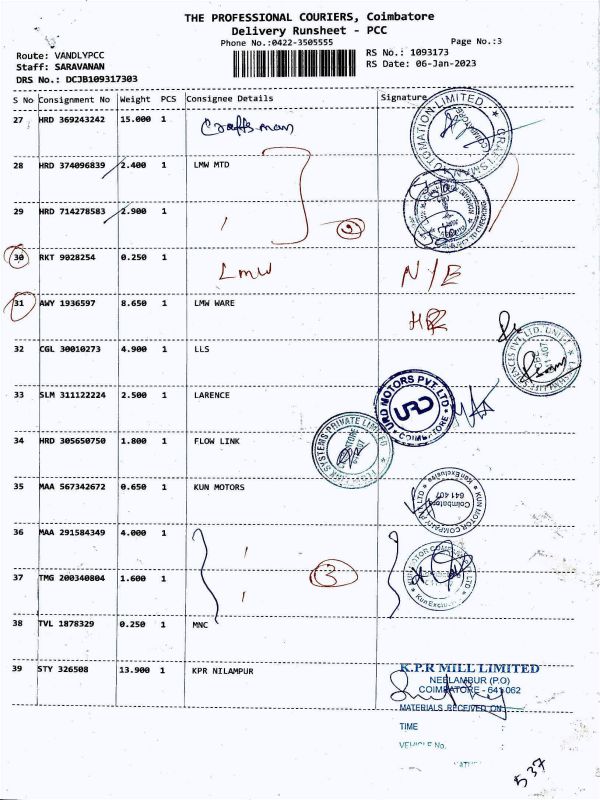 THE PROFESSIONAL COURIERS, Coimbatore
Delivery Runsheet - PCC
Phone No.:0422-3505555
Page No.:3
Route: VANDLYPCC
RS No.: 1093173
Staff: SARAVANAN
RS Date: 06-Jan-2023
DRS No.: DCJB109317303
S No Consignment No Weight PCS Consignee Details Signature
27 HRD 369243242 15.000 1 Craftsman
AUTOMATION LIMITED CRAFTSMAN COIMBATORE
28 HRD 374096839 2.400 1 LMW MTD
29 HRD 714278583 2.900 1
2
30 RKT 9028254 0.250 1 Lmw N/E
31 AWY 1936597 8.650 1 LMW WARE
32 CGL 30010273 4.900 1 LLS
641 407
33 SLM 311122224 2.500 1 LARENCE
URD MOTORS PVT. LTD
URD
COIMBATORE
34 HRD 305650750 1.800 1 FLOW LINK
SYSTEMS PRIVATE LIMITED
35 MAA 567342672 0.650 1 KUN MOTORS
KUN MOTOR COMPANY PVT LTD
Kun Exclusive
Coimbatore
641 407
36 MAA 291584349 4.000 1
37 TMG 200340804 1.600 1
3
KUN MOTOR COMPANY
Kun Exclusive
38 TVL 1878329 0.250 1 MNC
39 STY 326508 13.900 1 KPR NILAMPUR
K.P.R MILL LIMITED
NEELAMBUR (P.O)
COIMBATORE - 641 062
MATERIALS RECEIVED ON
TIME :
VEHICLE No.
537